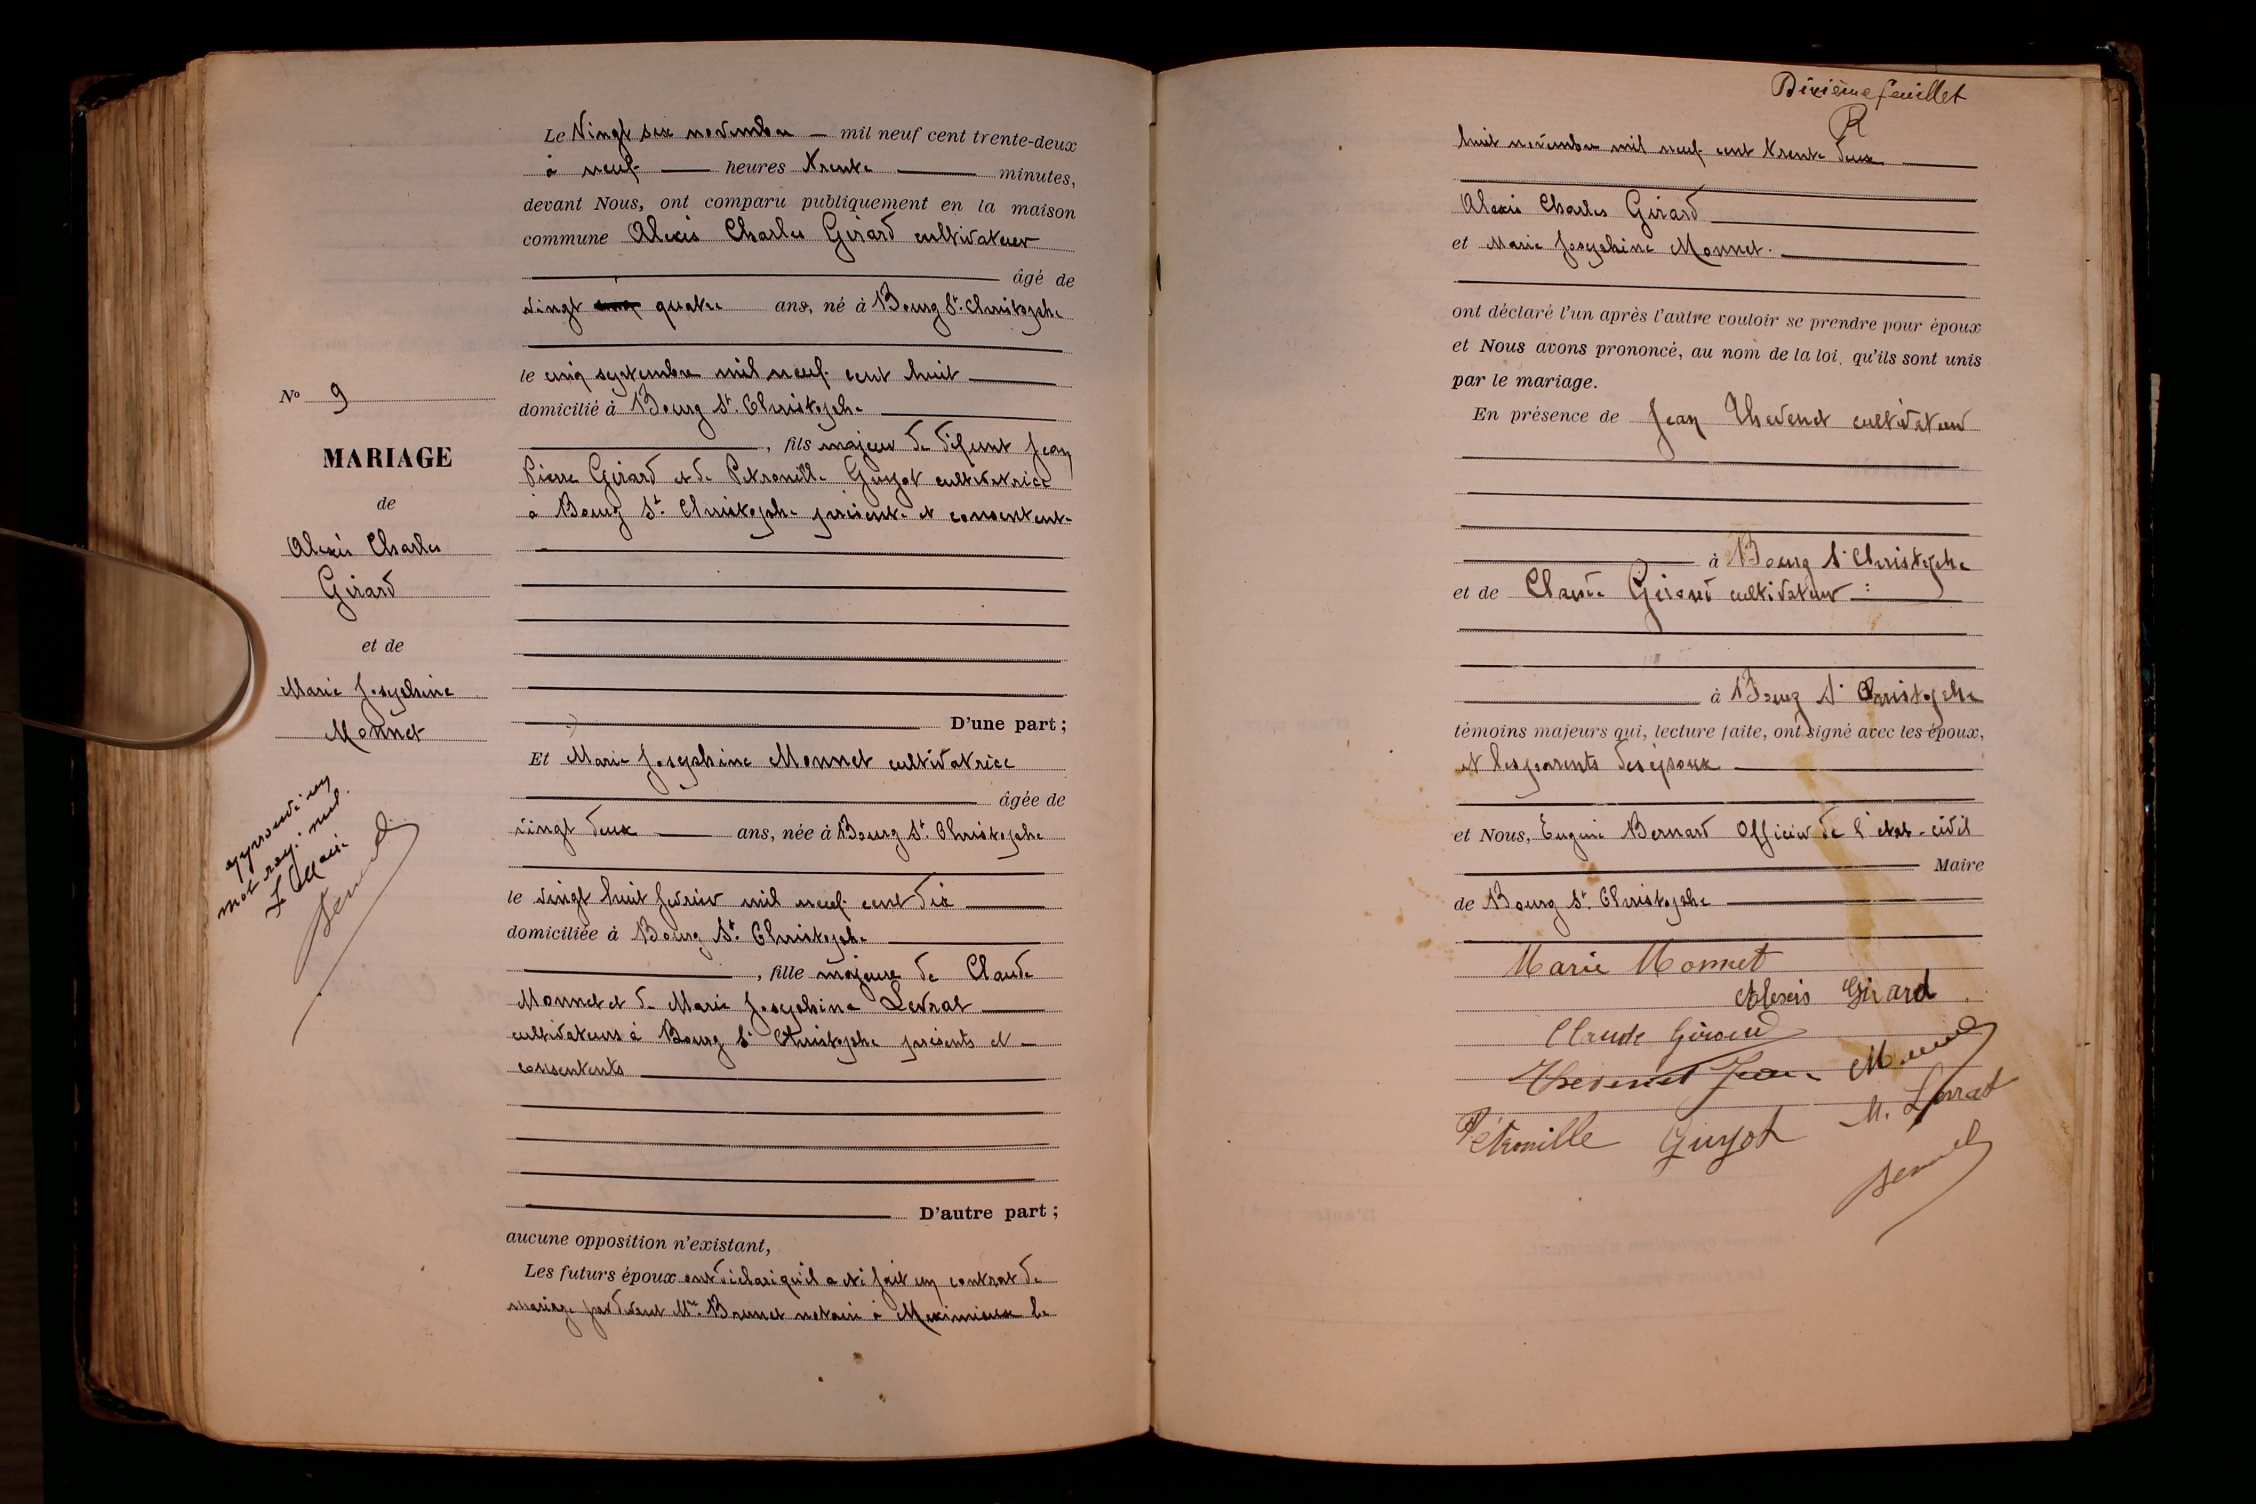 Le Vingt six novembre mil neuf cent trente-deux
à neuf heures trente minutes,
devant Nous, ont comparu publiquement en la maison
commune Alexis Charles Girard cultivateur
âgé de
vingt quatre ans, né à Bourg St. Christophe
le cinq septembre mil neuf cent huit
domicilié à Bourg St. Christophe
, fils majeur de défunt Jean
Pierre Girard et de Petronille Guyot cultivatrice
à Bourg St. Christophe présente et consentente
D'une part ;
Et Marie Josephine Monnet cultivatrice
âgée de
vingt deux ans, née à Bourg St. Christophe
le vingt huit fevrier mil neuf cent dix
domiciliée à Bourg St. Christophe
, fille majeure de Claude
Monnet et de Marie Josephine Levrat
cultivateurs à Bourg St Christophe présents et
consentents
D'autre part ;
aucune opposition n'existant,
Les futurs époux ont déclaré qu'il a été fait un contrat de
mariage pardevant Me. Brunet notaire à Meximieux le
No 9
MARIAGE
de
Alexis Charles
Girard
et de
Marie Josephine
Monnet
approuvé un
mot rayé nul.
Le Maire
Bernard
Dixième feuillet
huit novembre mil neuf cent trente deux
Alexis Charles Girard
et Marie Josephine Monnet.
ont déclaré l'un après l'autre vouloir se prendre pour époux
et Nous avons prononcé, au nom de la loi, qu'ils sont unis
par le mariage.
En présence de Jean Thevenet cultivateur
à Bourg St Christophe
et de Claude Giroud cultivateur
à Bourg St Christophe
témoins majeurs qui, lecture faite, ont signé avec les époux,
et les parents des époux
et Nous, Eugène Bernard Officier de l'état-civil
Maire
de Bourg St. Christophe
Marie Monnet
Alexis Girard
Claude Giroud
Thevenet Jean Monnet
Pétronille Guyot M. Levrat
Bernard